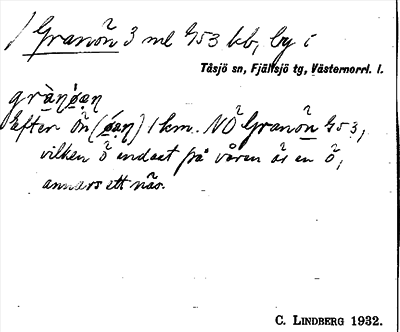 Granön 3 ml G53 kb, by i
Tåsjö sn, Fjällsjö tg, Västernorrl. l.
grànǿan
Efter ön (ǿan) 1 km. NÖ Granön G53,
vilken ö endast på våren är en ö,
annars ett näs.
C. LINDBERG 1932.